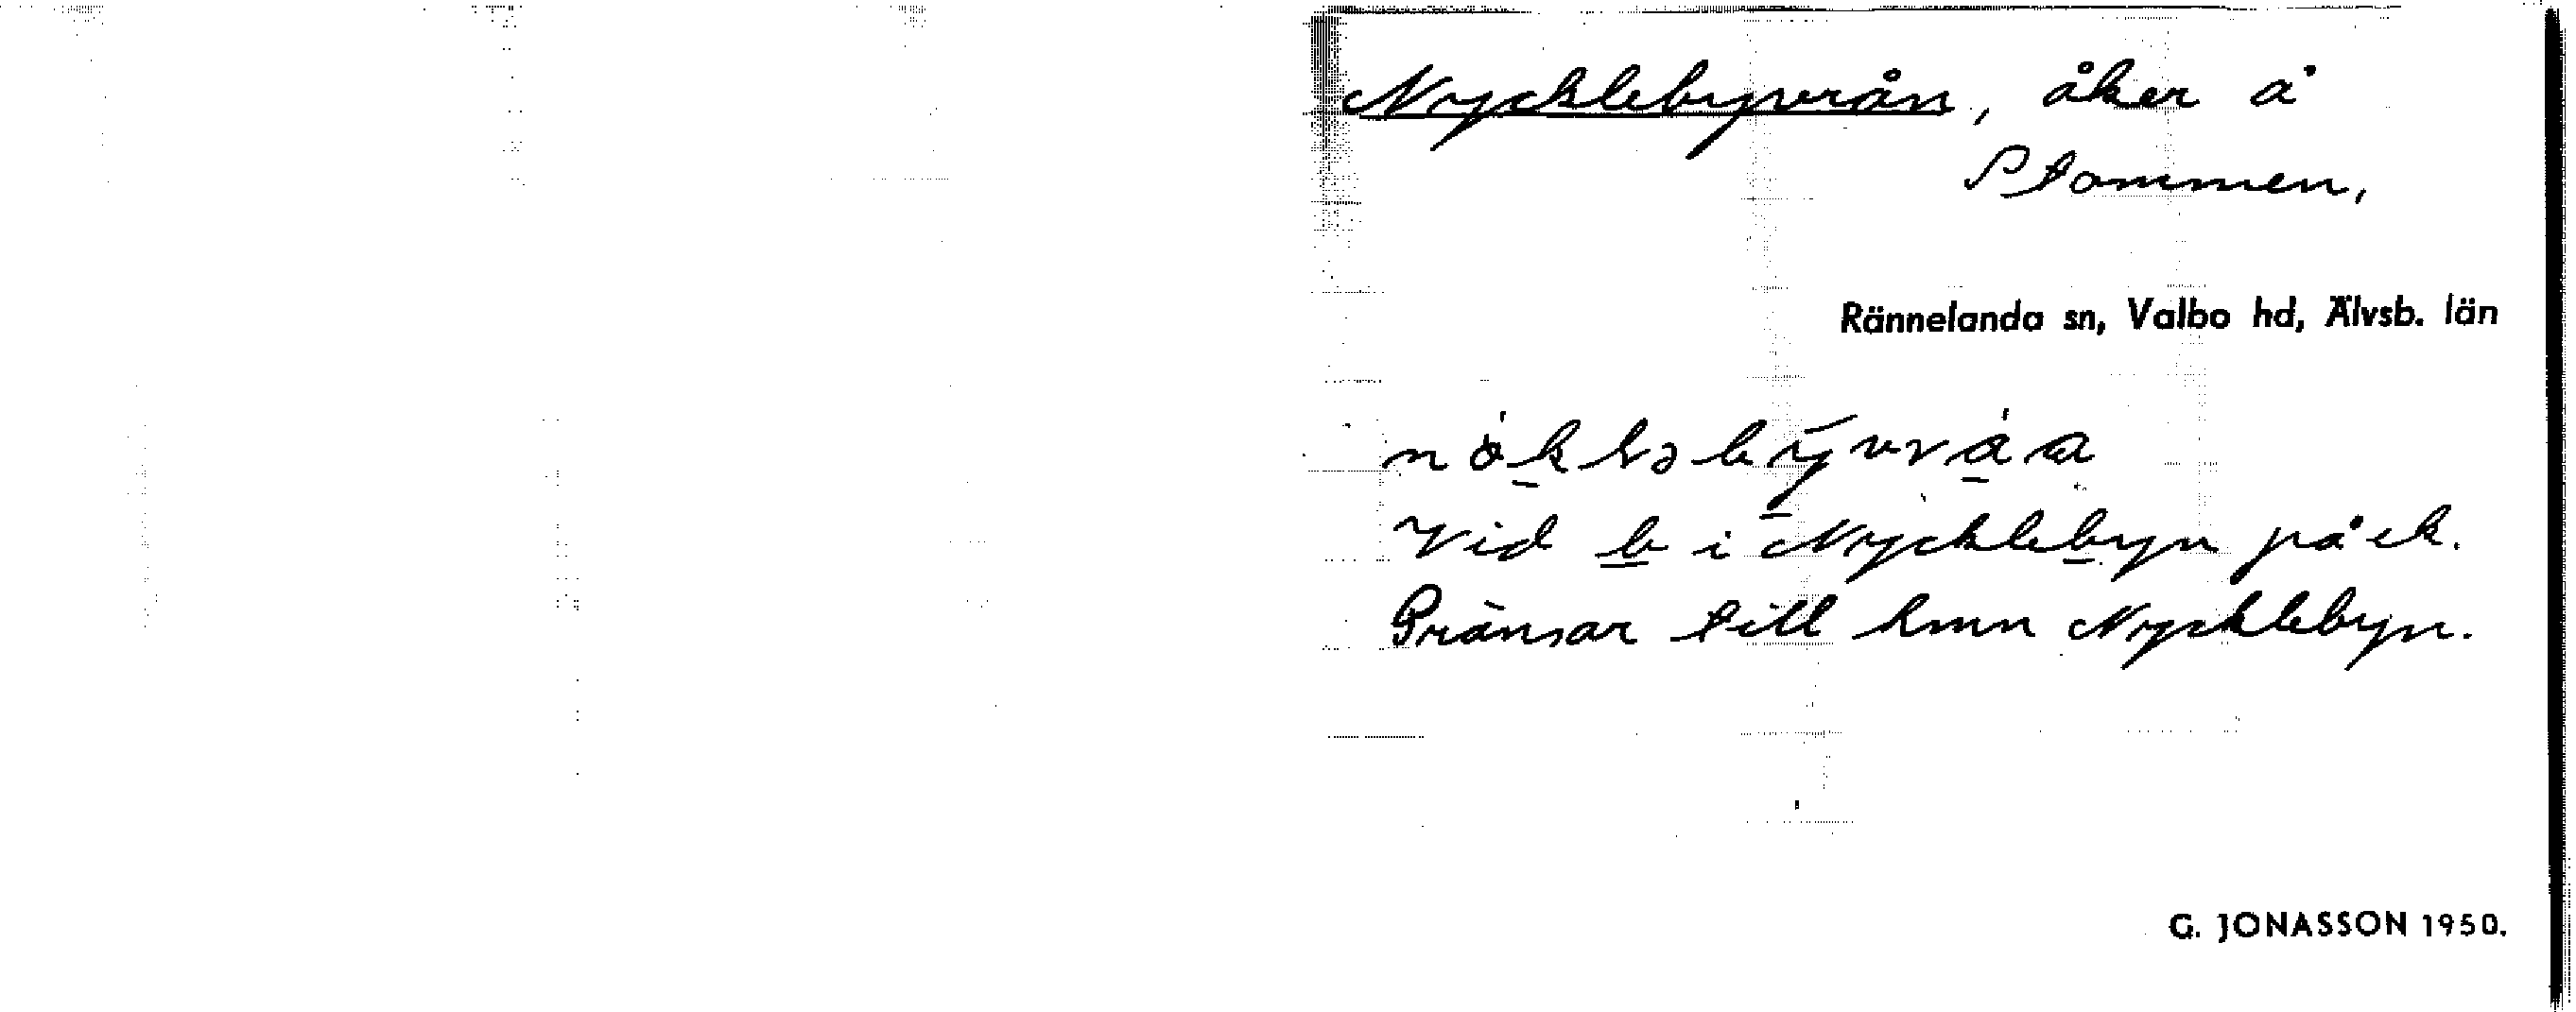 Nycklebyvrån, åker å
Stommen,
Rännelanda sn, Valbo hd, Älvsb. län
Vid b i Nycklebyn på ek.
Gränsar till hmn Nycklebyn.
G. JONASSON 1950.